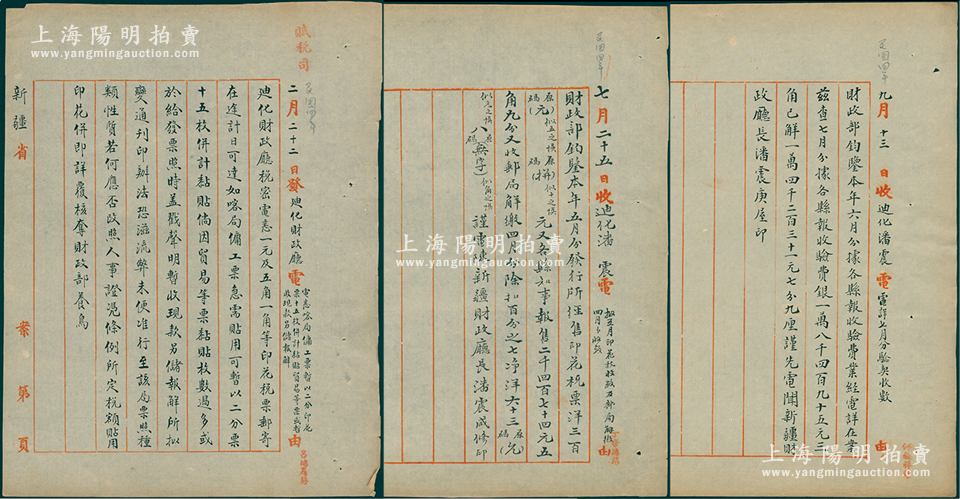 上海陽明拍賣
www.yangmingauction.com
賦稅司
民国四年
二月二十二日發迪化財政廳電
由
迪化財政廳稅密電悉一元及五角一角等印花稅票郵寄
在途計日可達如喀局傭工票急需貼用可暫以二分票
十五枚併計黏貼倘因貿易等票黏貼枚數過多或
於給發票照時盖戳聲明暫收現款另儲報解所拟
變通刊印辦法恐滋流弊未便准行至該局票照種
類性質若何應否改照人事證凭條例所定稅額貼用
印花併即詳覆核奪財政部養烏
新疆省
案第頁
上海陽明拍賣
www.yangmingauction.com
民国四年
七月二十五日收迪化潘震電
由
財政部鈞鑒本年五月分發行所徑售印花稅票洋三百
元又各縣知事報售二千四百七十四元五
角九分又收郵局解繳四月分除扣百分之七净洋六十三
謹電達新疆財政廳長潘震咸修印
上海陽明拍賣
www.yangmingauction.com
民国四年
九月十三日收迪化潘震電
電詳七月分驗契收數
由
財政部鈞鑒本年六月分據各縣報收驗費業經電詳在案
茲查七月分據各縣報收驗費銀一萬八千四百九十五元三
角已解一萬四千二百三十一元七分九厘謹先電聞新疆財
政廳長潘震庚崖印